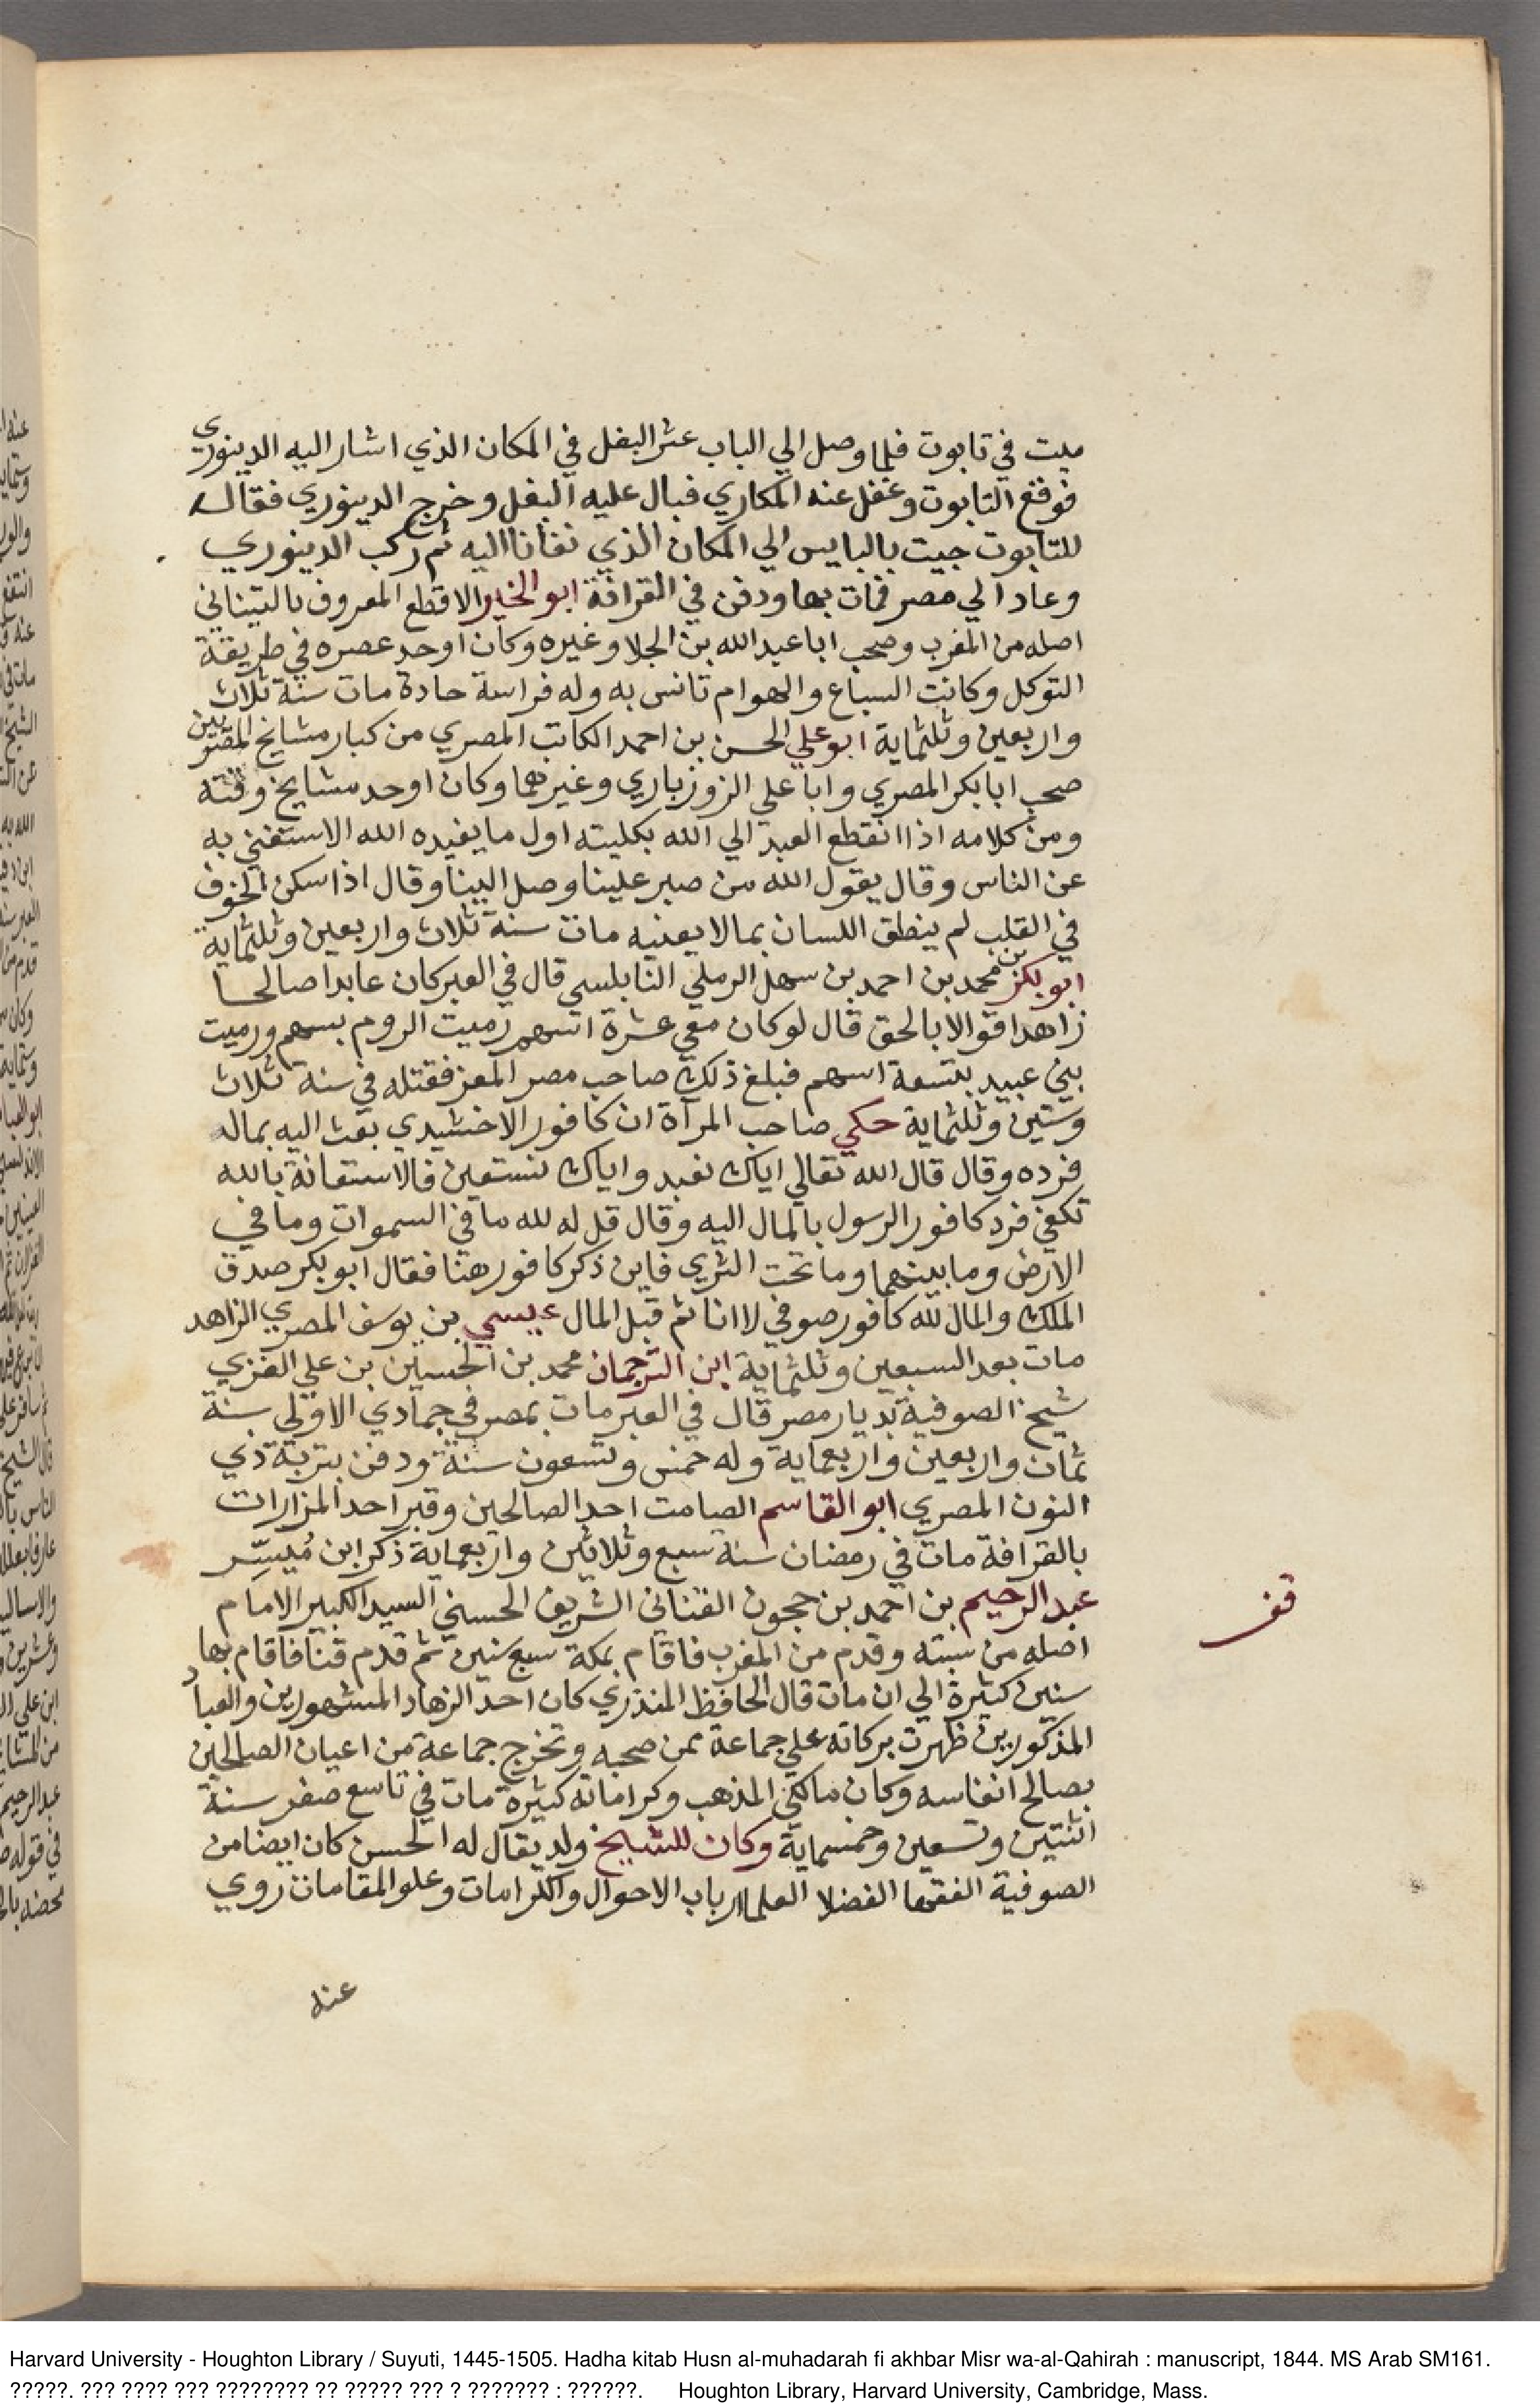 ميت في تابوت فلما وصل الي الباب عثر البغل في المكان الذي اشار اليه الدينوري
فوقع التابوت وغفل عنه المكاري فبال عليه البغل وخرج الدينوري فقال
للتابوت جيت بالبايس الي المكان الذي نفانا اليه ثم ركب الدينوري
وعاد الي مصر فمات بها ودفن في القرافة ابو الخير الاقطع المعروف بالتيناتي
اصله من المغرب وصحب ابا عبد الله بن الجلا وغيره وكان اوحد عصره في طريقة
التوكل وكانت السباع والهوام تانس به وله فراسة حادة مات سنة ثلاث
واربعين وثلثماية ابو علي الحسن بن احمد الكاتب المصري من كبار مشايخ المصريين
صحب ابا بكر المصري وابا علي الروزباري وغيرهما وكان اوحد مشايخ وقته
ومن كلامه اذا انقطع العبد الي الله بكليته اول ما يفيده الله الاستغني به
عن الناس وقال يقول الله من صبر علينا وصل الينا وقال اذا سكن الخوف
في القلب لم ينطق اللسان بما لا يعنيه مات سنة ثلاث واربعين وثلثماية
ابو بكر بن محمد بن احمد بن سهل الرملي النابلسي قال في العبر كان عابدا صالحا
زاهدا قوالا بالحق قال لو كان معي عشرة اسهم رميت الروم بسهم ورميت
بني عبيد بتسعة اسهم فبلغ ذلك صاحب مصر المعز فقتله في سنة ثلاث
وستين وثلثماية حكي صاحب المرآة ان كافور الاخشيدي بعث اليه بماله
فرده وقال قال الله تعالي اياك نعبد واياك نستعين فالاستعانة بالله
تكفي فرد كافور الرسول بالمال اليه وقال قل له لله ما في السموات وما في
الارض وما بينهما وما تحت الثري فاين ذكر كافور هنا فقال ابو بكر صدق
الملك والمال لله كافور صوفي لا انا ثم قبل المال عيسي بن يوسف المصري الزاهد
مات بعد السبعين وثلثماية ابن الترجمان محمد بن الحسين بن علي الغزي
شيخ الصوفية بديار مصر قال في العبر مات بمصر في جمادي الاولي سنة
ثمان واربعين واربعماية وله خمس وتسعون سنة ودفن بتربة ذي
النون المصري ابو القاسم الصامت احد الصالحين وقبر احد المزارات
بالقرافة مات في رمضان سنة سبع وثلاثين واربعماية ذكر ابن مُيسّر
عبد الرحيم بن احمد بن حجون القنائي الشريف الحسني السيد الكبير الامام
قف
اصله من سبته وقدم من المغرب فاقام بمكة سبع سنين ثم قدم قنا فاقام بها
سنين كثيرة الي ان مات قال الحافظ المنذري كان احد الزهاد المشهورين والعباد
المذكورين ظهرت بركاته علي جماعة ممن صحبه وتخرج جماعة من اعيان الصالحين
بصالح انفاسه وكان مالكي المذهب وكراماته كثيرة مات في تاسع صفر سنة
اثنتين وتسعين وخمسماية وكان للشيخ ولد يقال له الحسن كان ايضا من
الصوفية الفقها الفضلا العلما ارباب الاحوال والكرامات وعلو المقامات روي
عنه
Harvard University - Houghton Library / Suyuti, 1445-1505. Hadha kitab Husn al-muhadarah fi akhbar Misr wa-al-Qahirah : manuscript, 1844. MS Arab SM161.
?????. ??? ???? ??? ???????? ?? ????? ??? ? ??????? : ??????. Houghton Library, Harvard University, Cambridge, Mass.